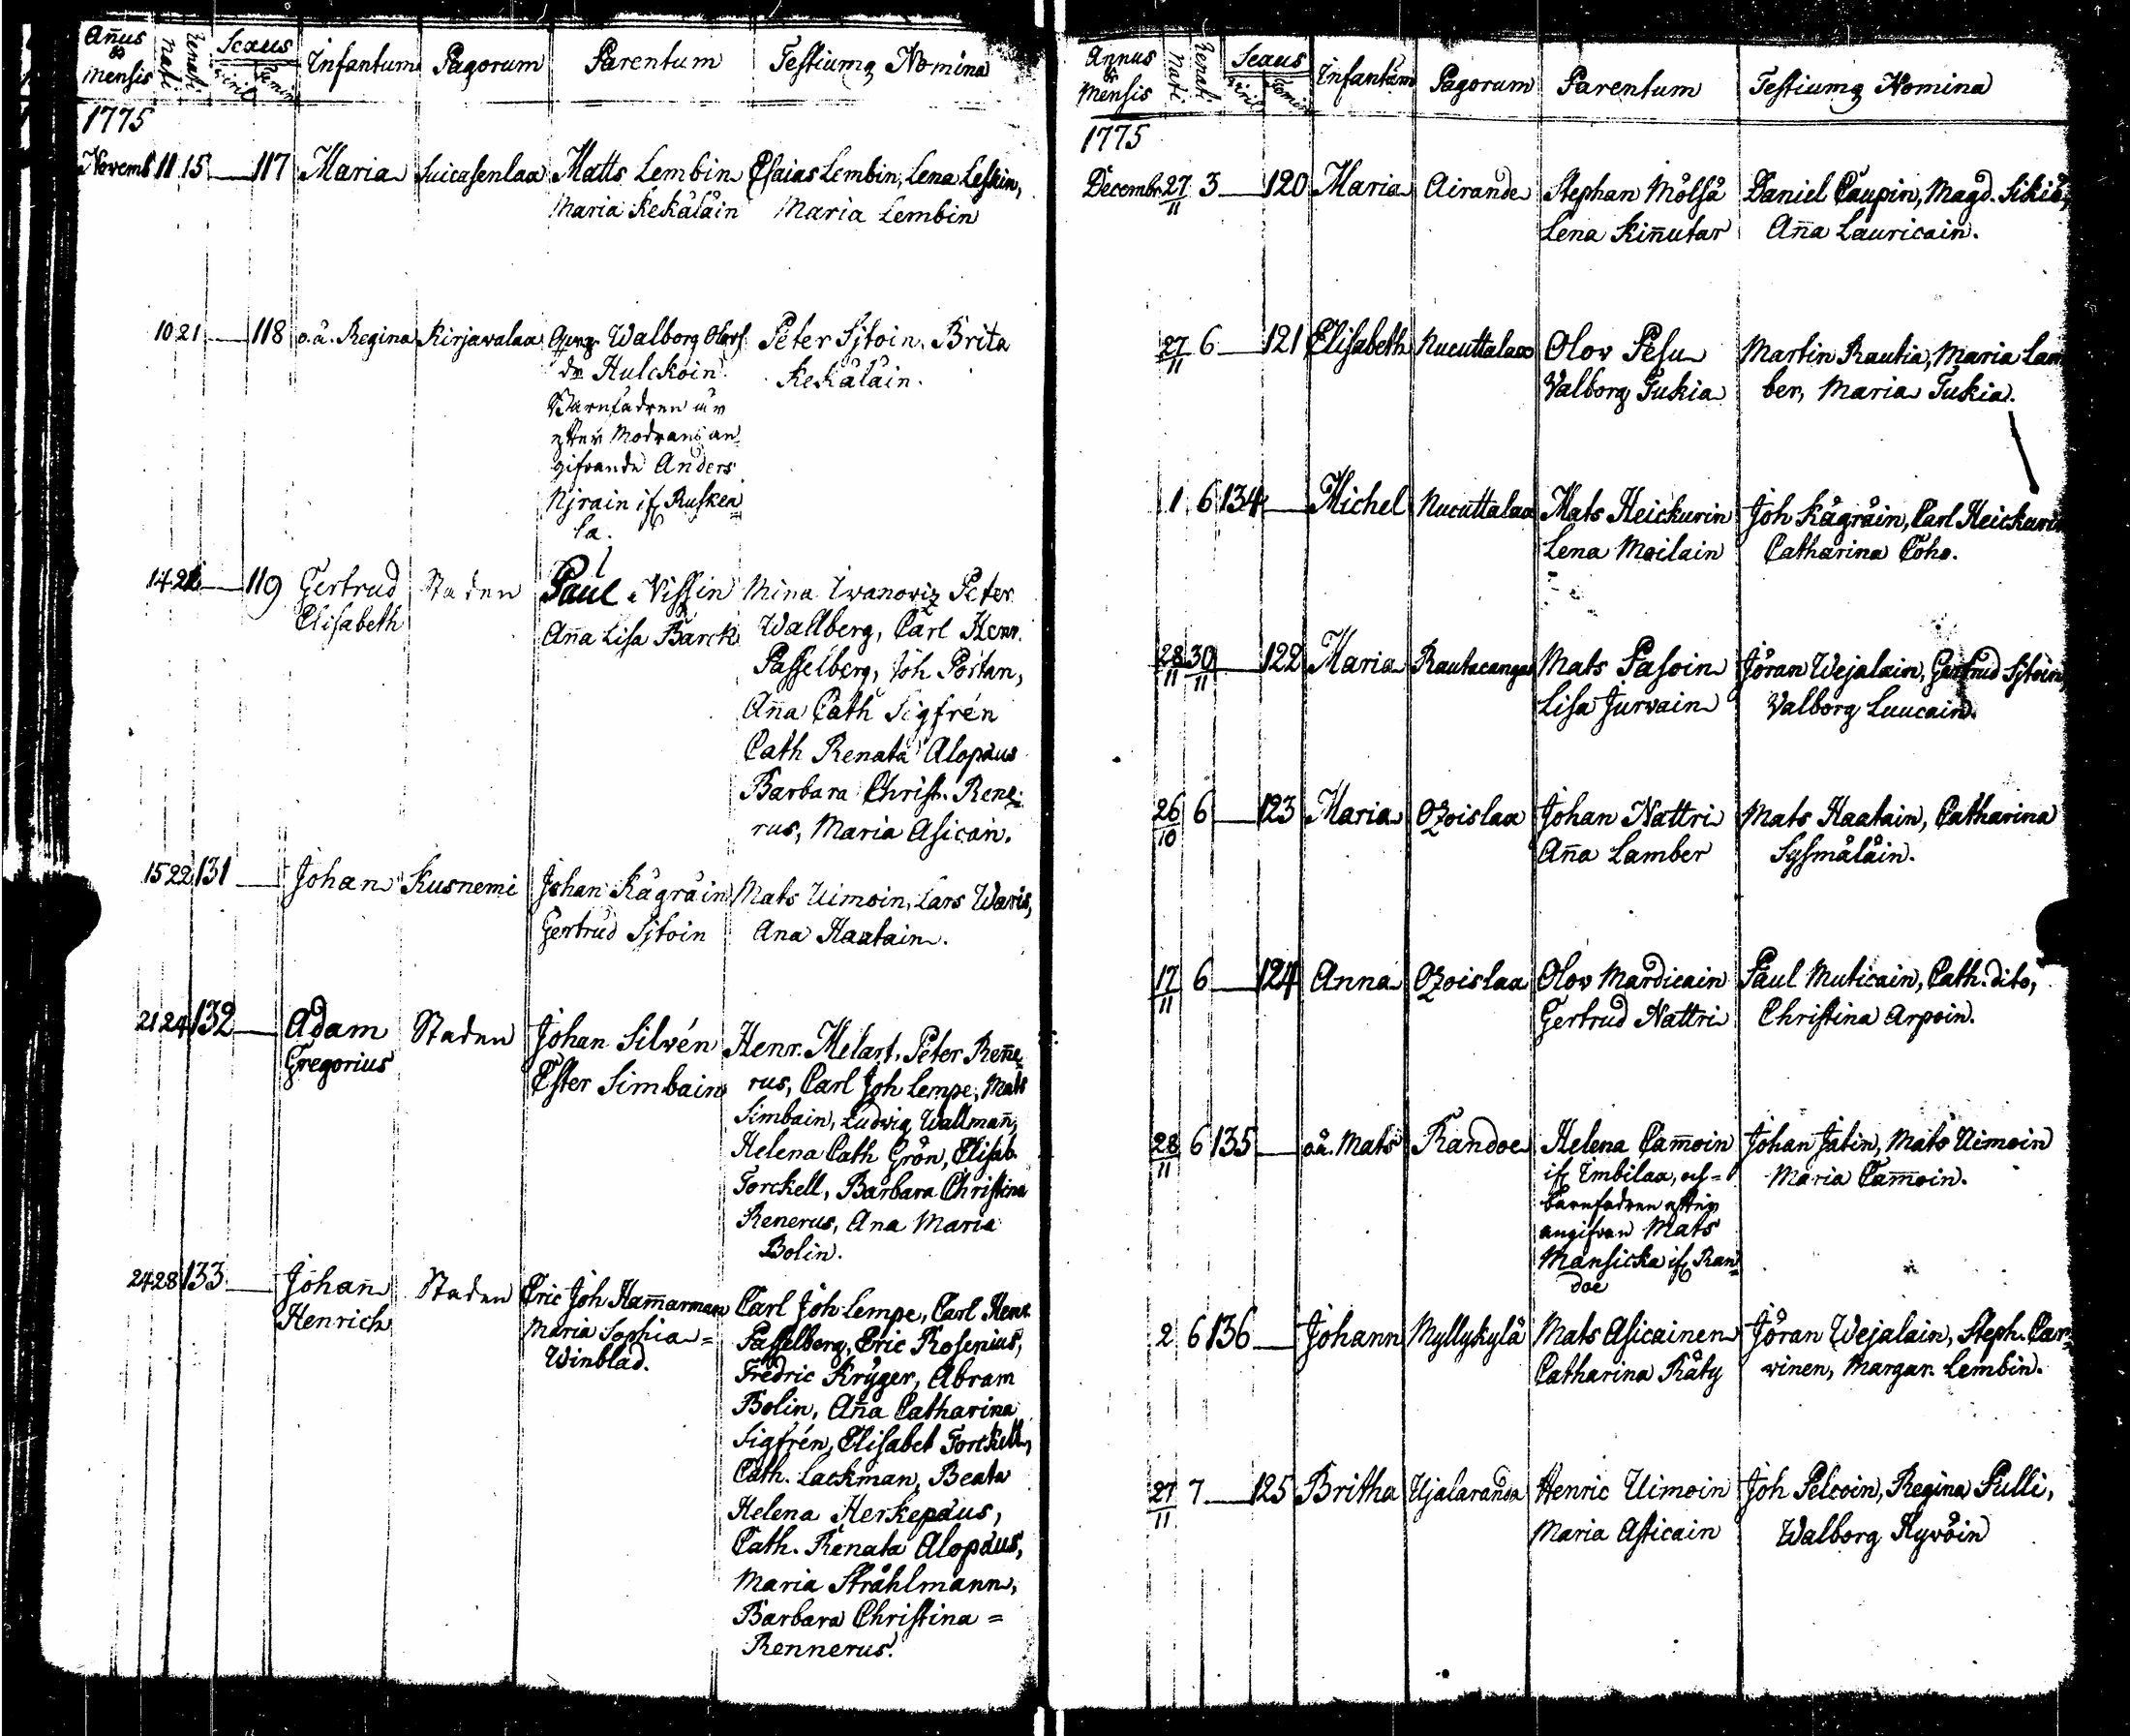 Añus & Mensis Nati Renati Sexus Viril Femin Infantum Pagorum Parentum Testiumq Nomina
1775
Novemb 11 15 — 117 Maria Suicasenlax Matts Lembin Esaias Lembin, Lena Leskin,
Maria Kekäläin Maria Lembin
10 21 — 118 o.ä. Regina Kirjavalax Walborg Olofs Peter Sitoin, Brita
dr Hulckoin. Kekäläin.
Barnfadren är
efter Modrans an
gifvande Anders
Njrain if. Ruskea
la.
14 21 — 119 Gertrud Staden Paul Nissin Mina Iwanoviz Peter
Elisabeth Aña Lisa Barck Wallberg, Carl Henr.
Passelberg, Joh Portan,
Aña Cath Sigfrén
Cath Renata Alopæus
Barbara Christ. Rene
rus, Maria Asicain.
15 22 131 — Johan Kusnemi Johan Kägräin Mats Uimoin, Lars Waris,
Gertrud Sitoin Ana Haatain.
21 24 132 — Adam Staden Johan Silvén Henr. Melart, Peter Reñe
Gregorius Ester Simbain rus, Carl Joh Lempe, Mats
Simbain, Ludvig Wallmañ,
Helena Cath Grön, Elisab.
Torckell, Barbara Christina
Renerus, Ana Maria
Bolin.
24 28 133 — Johañ Staden Eric Joh Ham̄arman Carl Joh Lempe, Carl Henr.
Henrich Maria Sophia = Passelberg, Eric Rosenius,
Winblad. Fredric Krÿger, Abram
Bolin, Aña Catharina
Sigfrén, Elisabet Torckell,
Cath. Lackman, Beata
Helena Herkepæus,
Cath. Renata Alopæus,
Maria Stråhlmann,
Barbara Christina =
Rennerus.
Annus & Mensis Nati Renati Sexus Viril Femin Infantum Pagorum Parentum Testiumq Nomina
1775
Decembr 27/11 3 — 120 Maria Airande Stephan Mölsä Daniel Caupin, Magd. Sikiö,
Lena Kiñutar Aña Lauricain.
27/11 6 — 121 Elisabeth Nucuttalax Olov Pesu Martin Rautia, Maria Lam
Valborg Tukia ber, Maria Tukia.
1 6 134 — Michel Nucuttalax Mats Heickurin Joh Kägräin, Carl Heickurin
Lena Moilain Catharina Coho.
28/11 30/11 — 122 Maria Rautacangas Mats Pasoin Jöran Wejalain, Gertrud Sitoin,
Lisa Jurvain Valborg Luucain.
26/10 6 — 123 Maria Ozoislax Johan Nattri Mats Haatain, Catharina
Aña Lamber Sysmäläin.
17/11 6 — 124 Anna Ozoislax Olov Mardicain Paul Muticain, Cath. dito,
Gertrud Nattri Christina Arpoin.
28/11 6 135 — o.ä. Mats Randoe Helena Cam̄oin Johan Jatin, Mats Uimoin
if. Imbilax, och = Maria Cam̄oin.
barnfadren efter
angifvan Mats
Mansicka if. Ran
doe
2 6 136 — Johann Myllykylä Mats Asicainen Jöran Wejalain, Steph. Car
Catharina Räty winen, Margar. Lembin.
27/11 7 — 125 Britha Ujalaranda Henric Uimoin Joh Pelcoin, Regina Pilli,
Maria Asicain Walborg Hyvöin